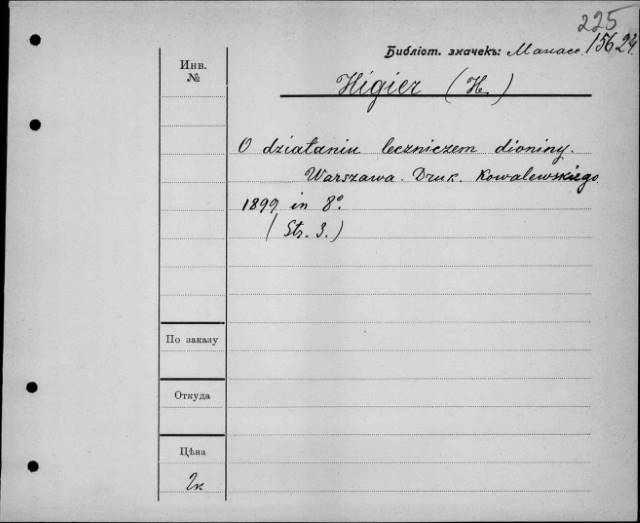 225
Библіот. значекъ: Манасс. 15624
Инв.
№
Higier (H.)
O działaniu leczniczem dioniny.
Warszawa. Druk. Kowalewskiego
1899 in 8º.
(Str. 3.)
По заказу
Откуда
Цѣна
2к